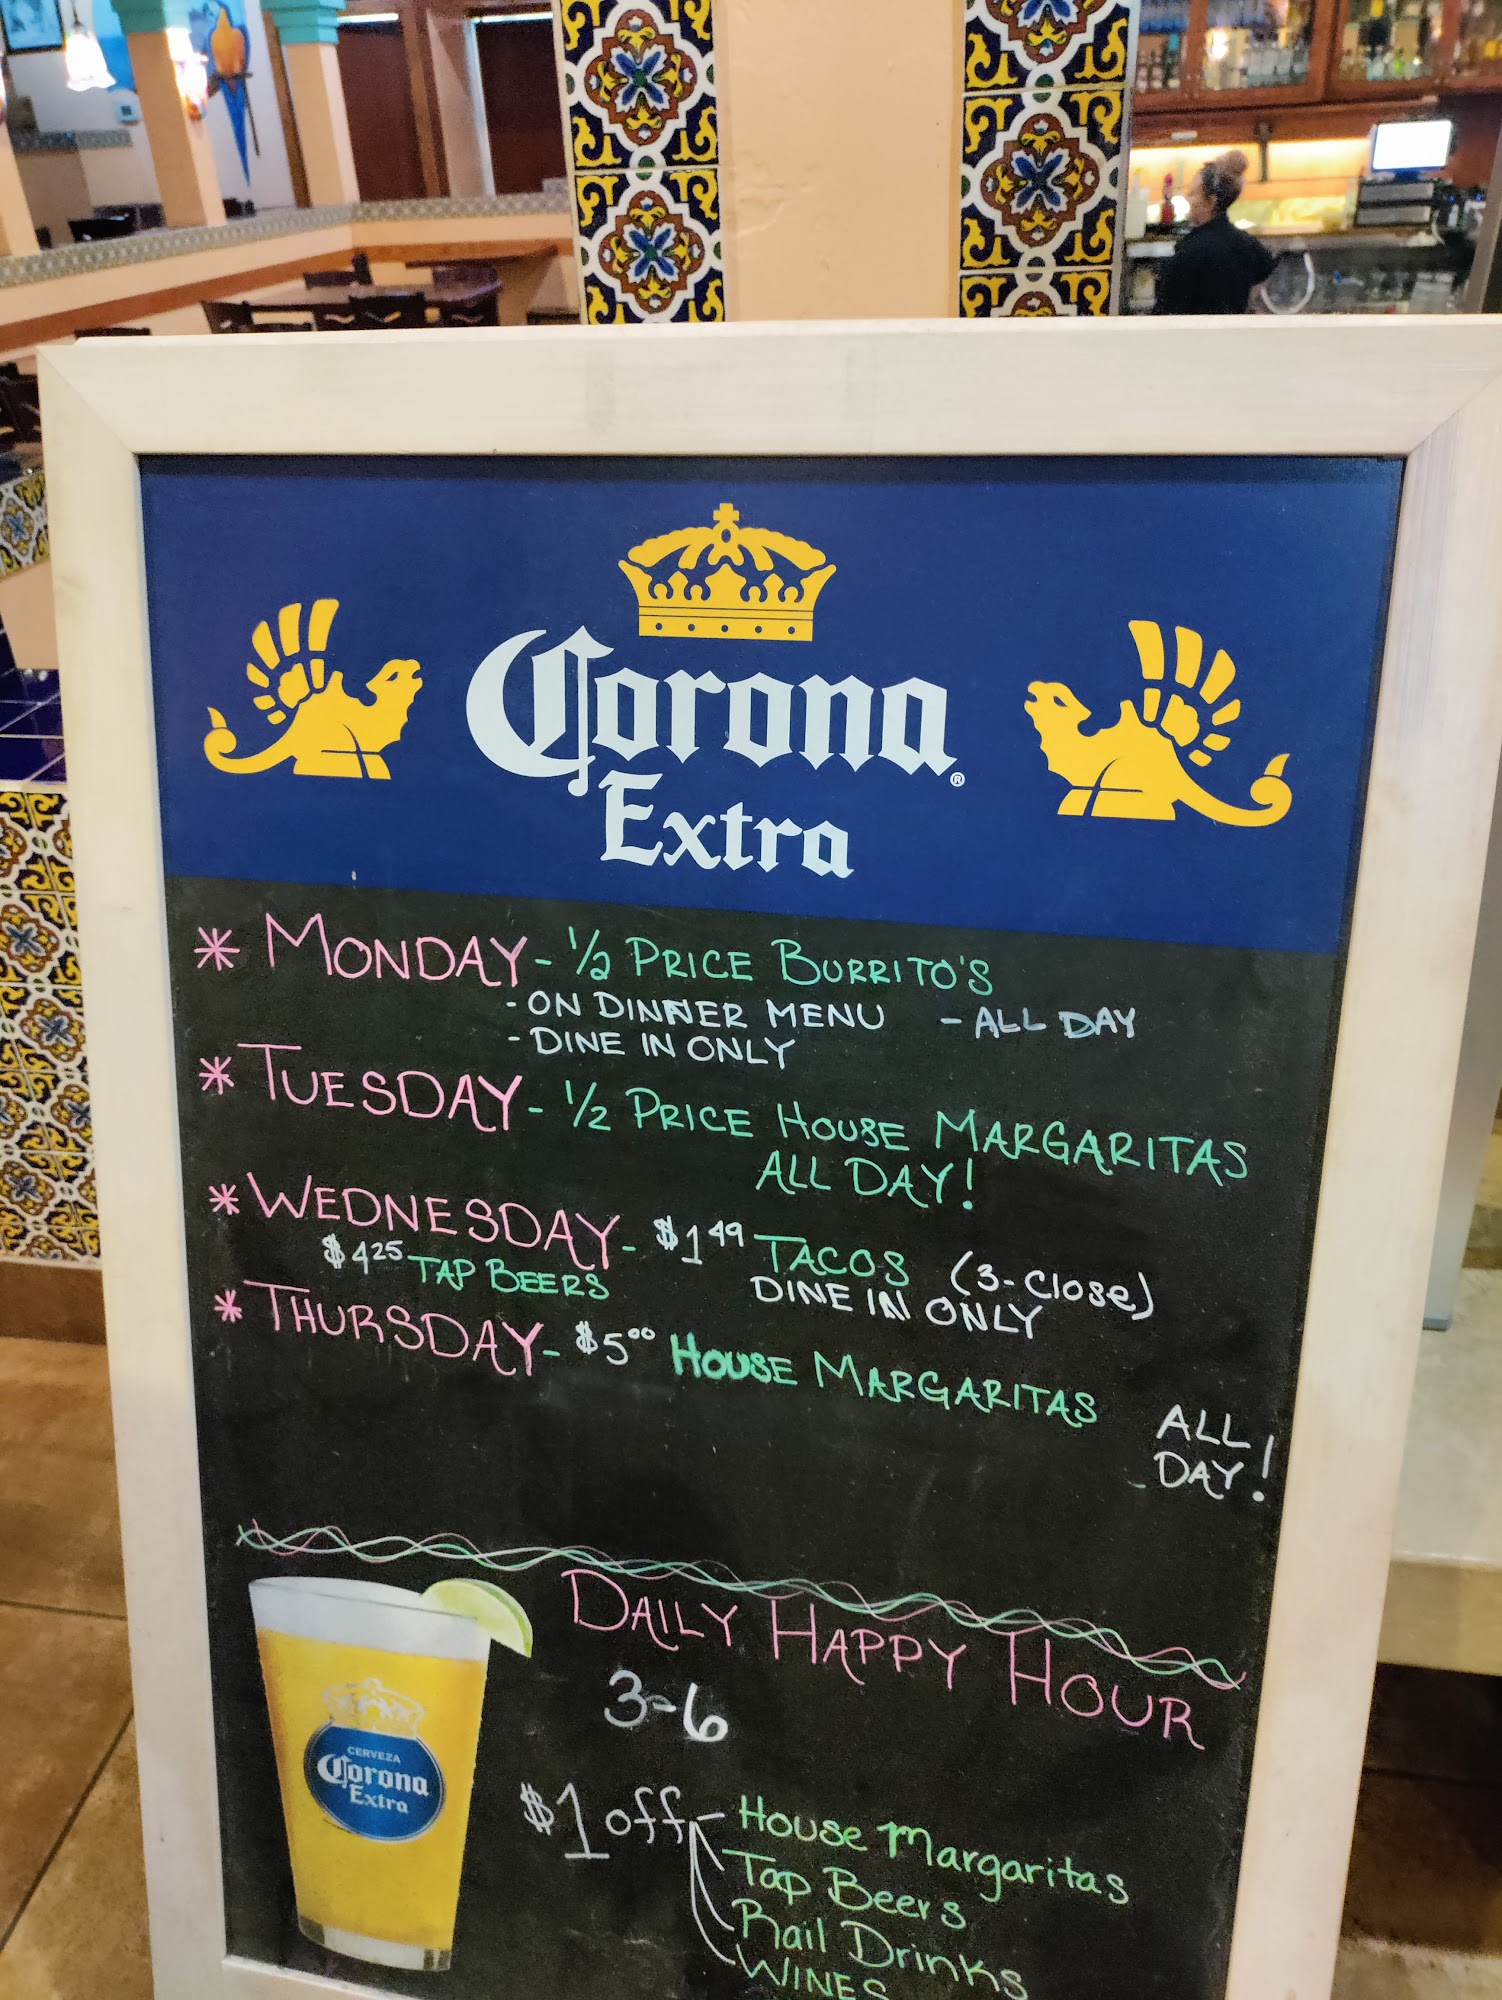 Corona
®
Extra
* MONDAY - 1/2 PRICE BURRITO'S
- ON DINNER MENU - ALL DAY
- DINE IN ONLY
* TUESDAY - 1/2 PRICE HOUSE MARGARITAS
ALL DAY!
* WEDNESDAY - $1 49 TACOS (3-Close)
$4 25 TAP BEERS DINE IN ONLY
* THURSDAY - $5 00 HOUSE MARGARITAS
ALL
DAY!
DAILY HAPPY HOUR
3-6
$1 off - House Margaritas
Tap Beers
Rail Drinks
WINES
CERVEZA
Corona
Extra